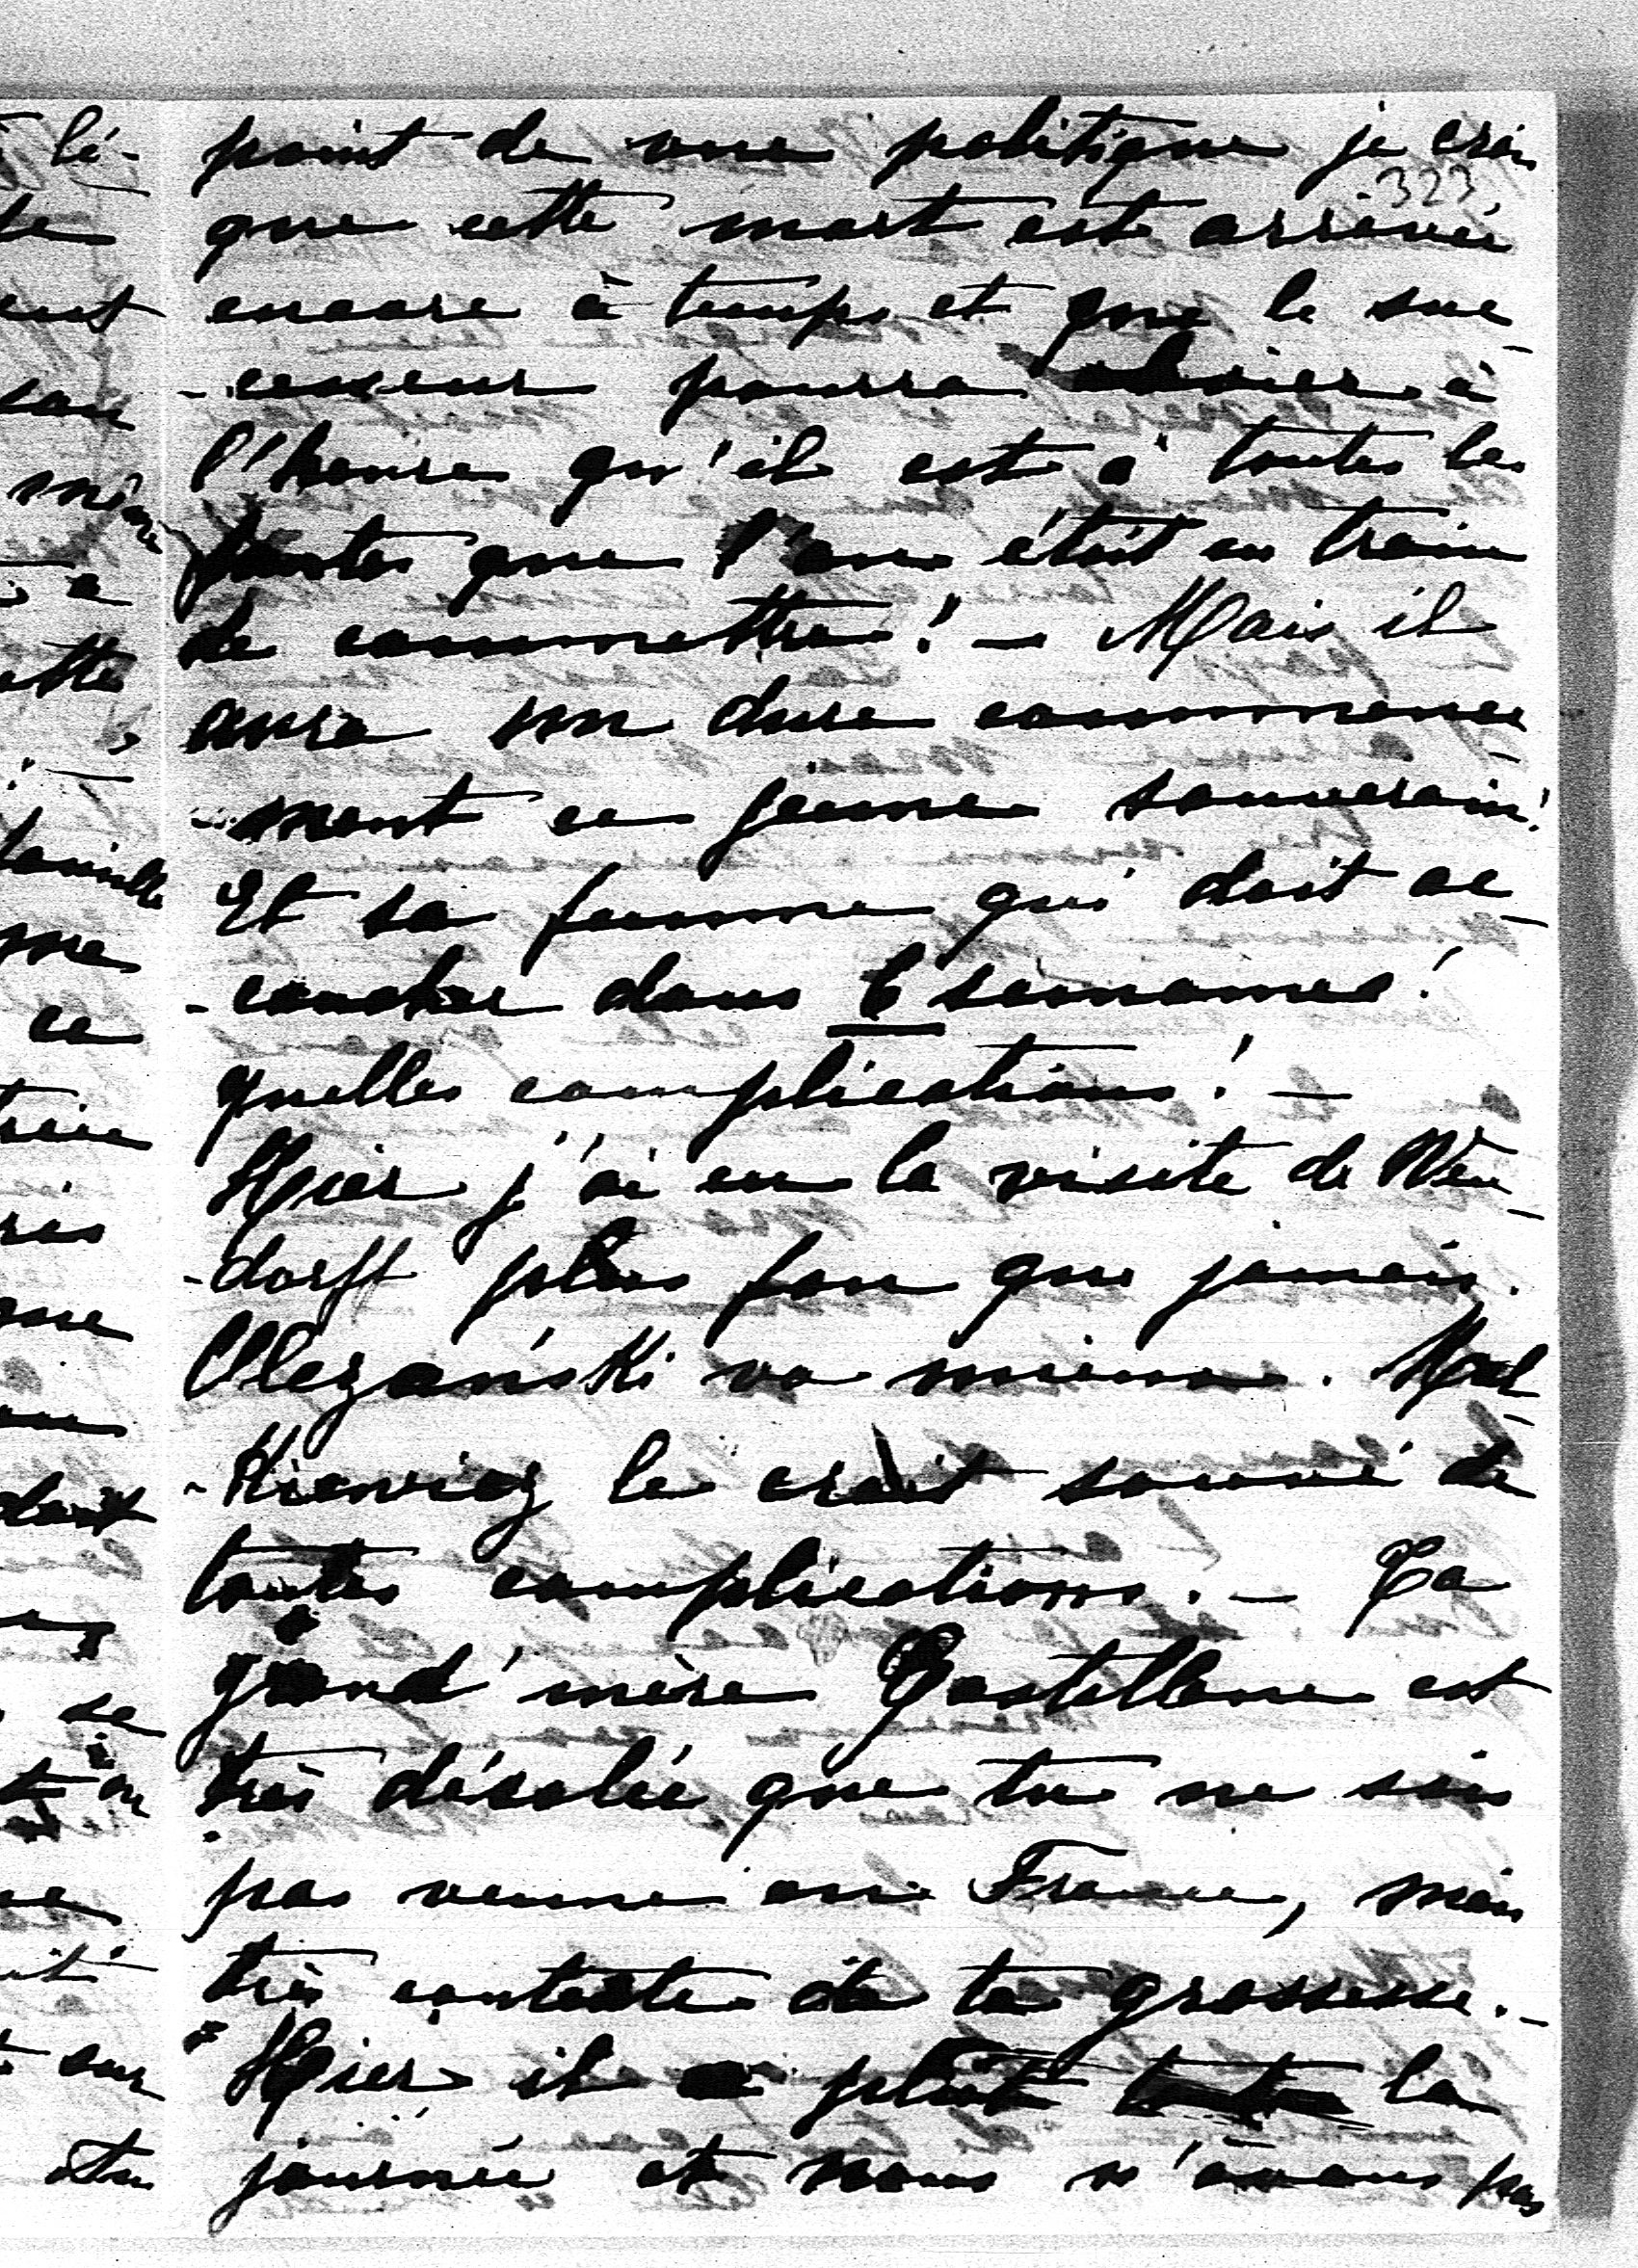 point de vue politique je crois
323
que cette mort est arrivée
encore à temps et que le suc-
-cesseur pourra obvier à
l'heure qu'il est à toutes les
fautes que l'on était en train
de commettre! — Mais il
aura un dure commence-
-ment ce jeune souverain!
Et sa femme qui doit ac-
-coucher dans 6 semaines!
quelles complications! —
Hier j'ai eu la visite de Neu-
-dorff plus fou que jamais.
Olezański va mieux. Mal-
-Kiewicz le croit sauvé de
toutes complications. — Ta
grand'mère Castellane est
très désolée que tu ne sois
pas venue en France, mais
très contente de ta grossesse. —
Hier il a plut toute la
journée et nous n'avons pas